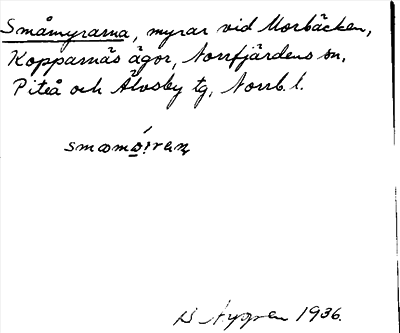 Småmyrarna, myrar vid Morbäcken,
Kopparnäs ägor, Norrfjärdens sn,
Piteå och Älvsby tg, Norrb. l.
Nygren 1936.